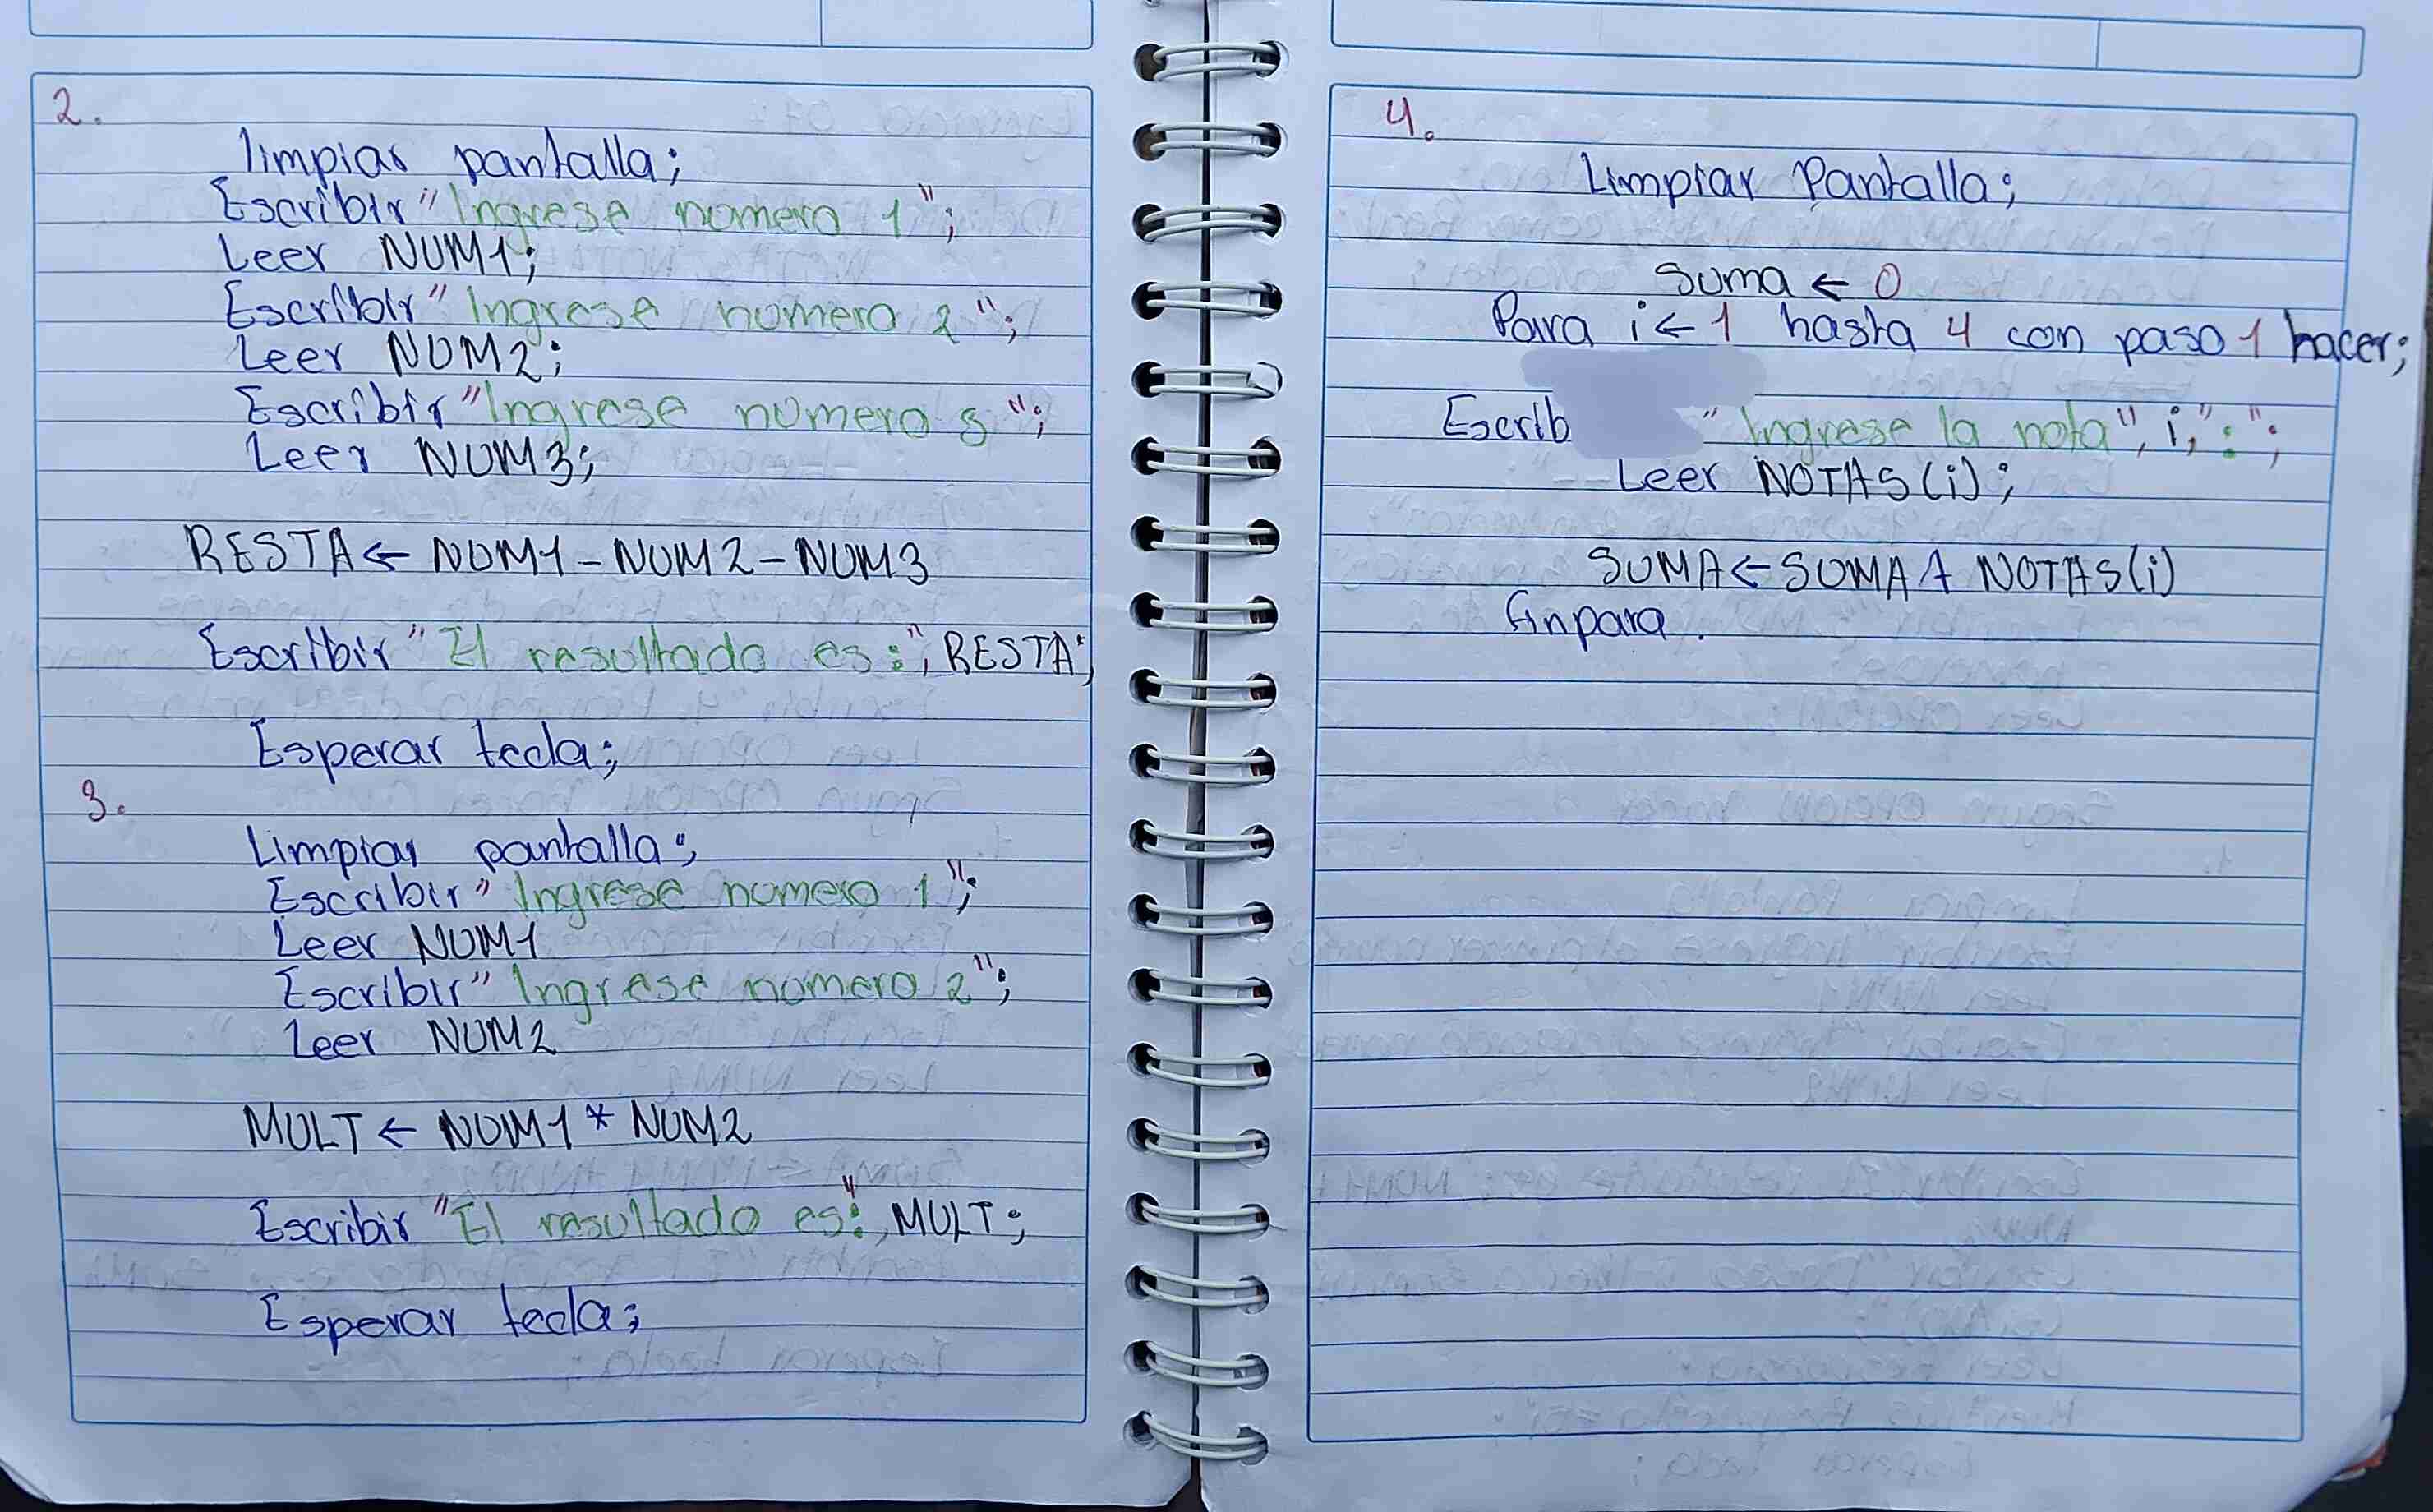 2.
limpiar pantalla;
Escribir "Ingrese numero 1";
Leer NUM1;
Escribir "Ingrese numero 2";
Leer NUM2;
Escribir "Ingrese numero 3";
Leer NUM3;
RESTA ← NUM1 - NUM2 - NUM3
Escribir "El resultado es:", RESTA;
Esperar tecla;
3.
Limpiar pantalla;
Escribir "Ingrese numero 1";
Leer NUM1
Escribir "Ingrese numero 2";
Leer NUM2
MULT ← NUM1 * NUM2
Escribir "El resultado es:", MULT;
Esperar tecla;
4.
Limpiar Pantalla;
Suma ← 0
Para i ← 1 hasta 4 con paso 1 hacer;
"Ingrese la nota", i, ":";
Leer NOTAS(i);
SUMA ← SUMA + NOTAS(i)
finpara.